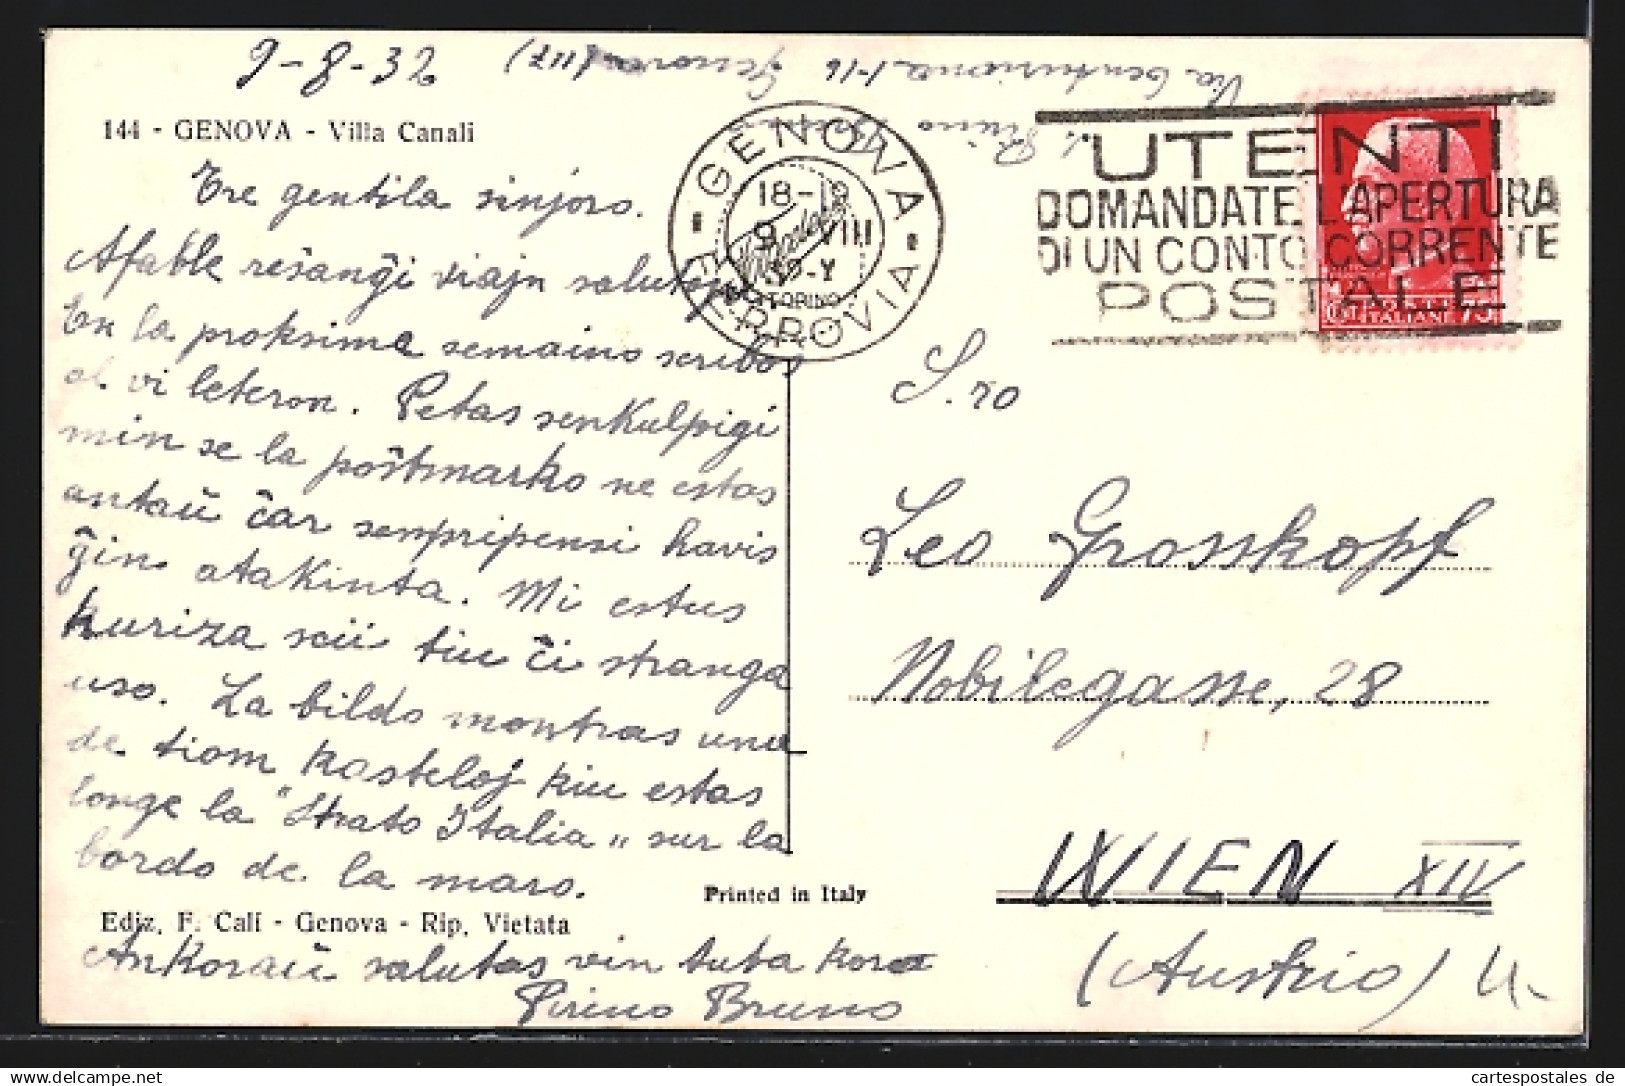 9-8-32
Via Centuriona 1-16 Genova (117)
S. Pirino Bruno
144 - GENOVA - Villa Canali
Tre gentila sinjoro.
Afable reŝanĝi viajn salutojn
En la proksima semaino scribos
al vi leteron. Petas senkulpigi
min se la poŝtmarko ne estas
antaŭ ĉar senpripensi havis
ĝin atakinta. Mi estus
kuriza scii tiu ĉi stranga
uso. La bildo montras unu
de tiom kasteloj kiu estas
longe la "Strato Italia" sur la
bordo de la maro.
Ediz. F. Cali - Genova - Rip. Vietata
Ankoraŭ salutas vin tuta kora
Pirino Bruno
Printed in Italy
GENOVA
18-19
9 VIII
32-X
TORINO
FERROVIA
UTENTI
DOMANDATE L'APERTURA
DI UN CONTO CORRENTE
POSTALE
POSTE
ITALIANE 75
S.ro
Leo Grosskopf
Nobilegasse, 28
WIEN XIV
(Austrio)
delcampe.net
cartespostales de